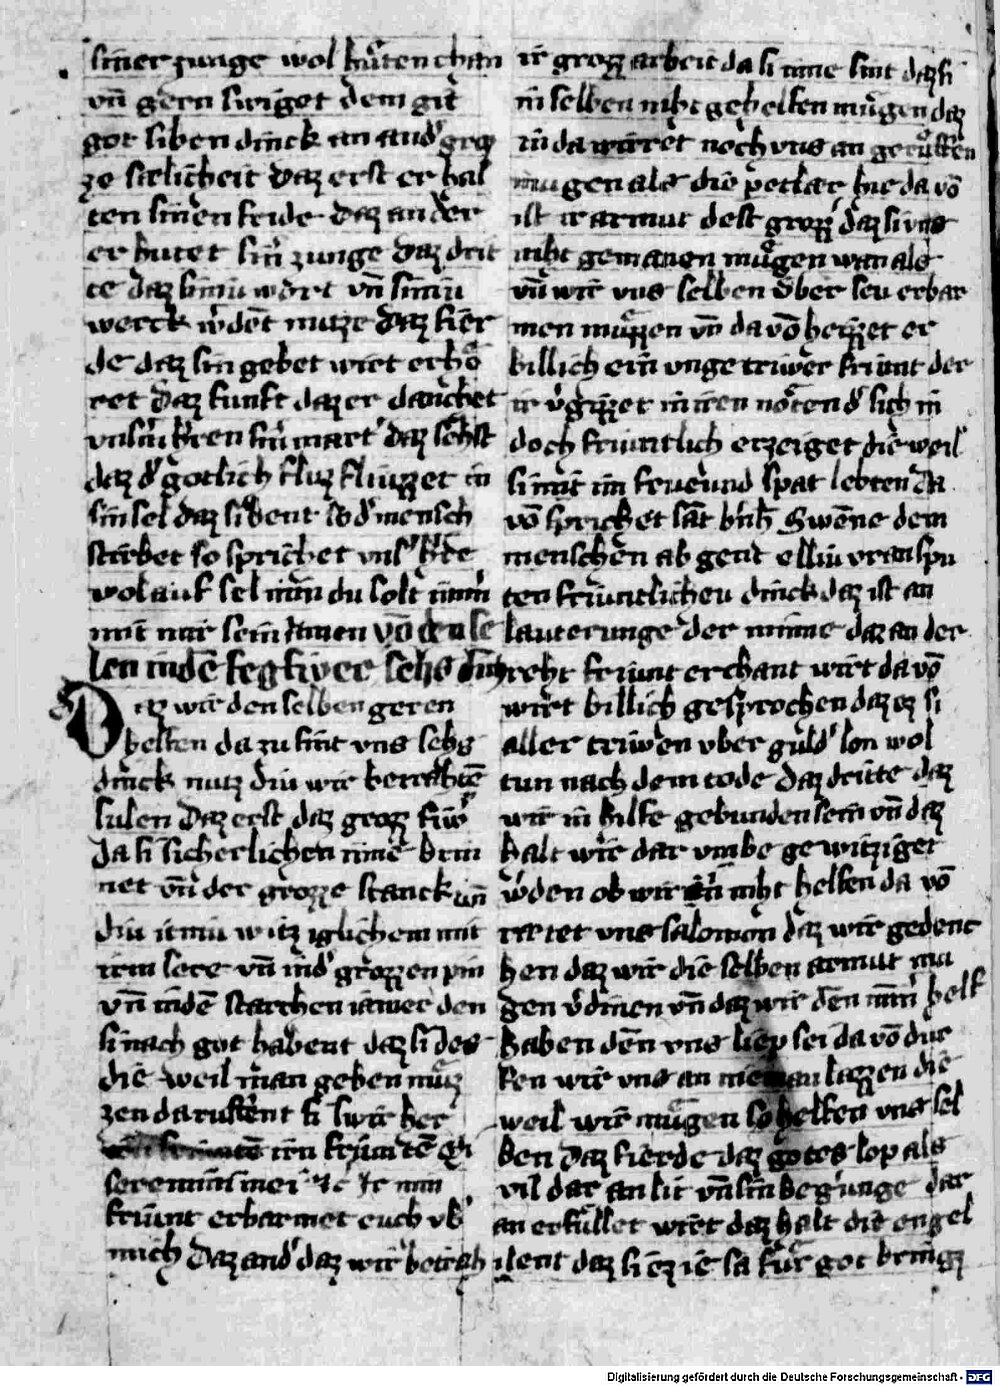 siner zunge wol hüten chan
vn̄ gern swiget dem git
got siben dinck an and' groz
ze sælicheit Daz erst er hal
ten sinen fride Daz ander
er hütet sin' zunge Daz drit
te daz siniu wort vn̄ siniu
werck w'dēt nutze Daz fier
de daz sin gebet wirt erhö
ret Daz funft daz er danchet
vnsm h'ren sin' mart' Daz sehst
daz d' gotlich fluz fliuzzet in
sin sel Daz sibent so d' mensch
stirbet so sprichet vns' h're
wol auf sel min du solt im̄'
mit mir sein Amen Vō den se
len in dē fegfiwer sehs dinch
Daz wir den selben geren
helfen da zu sint vns sehs
dinck nutz diu wir betrahtē
suln Daz erst daz groz fiw'
da si sicherlichen inne brin
net vn̄ der grozze stanck
diu itniu witz iglichem mit
irm sere vn̄ in d' grozzen pin
vn̄ in dē starchen iamer den
si nach got habent daz si des
die weil man geben müz
zen da rufēnt si swir her
irn friuntē Mi
seremini mei etc Ir min
friunt erbarmet euch vb'
mich Daz and' daz wir betrah
ir groz arbeit da si inne sint daz si
in selben niht gehelfen mügen daz
in da wirret noch vns an gerüffen
mugen als die petler hie da vō
ist ir armut dest grozz' daz si vns
niht gemanen mügen wan als
vn̄ wir vns selben über seu erbar
men müzzen vn̄ da vō heizzet er
billich ein vngetriwer friunt der
ir v'gizzet in iren nöten d' sich in
doch friuntlich erzeiget die weil
si mit im frue und spat lebten Da
vō sprichet sāt b'nh' Swēne dem
menschen ab gent elliu vranspu
ten friuntlicheu dinck daz ist an
lauterunge der minne daz an der
reht friunt erchant wirt da vō
wirt billich gesprochen daz ez si
aller triwen vber guld' lon wol
tun nach dem tode Daz dritte daz
wir in hilfe gebunden sein vn̄ daz
halt wir dar vmbe gewitziget
w'den ob wir in niht helfen da vō
rætet vns salomon daz wir gedenc
hen daz wir die selben armut mü
gen v'dinen vn̄ daz wir dēn nim' helf
haben dēn vns liep sei da vō dür
fen wir vns an nieman lazzen die
weil wir mügen so helfen vns sel
ben Daz fierde daz gotes lop als
vil dar an lit vn̄ sin begirunge dar
an erfüllet wirt daz halt die engel
ilent daz si ez ie sa für got bringz
Digitalisierung gefördert durch die Deutsche Forschungsgemeinschaft - DFG